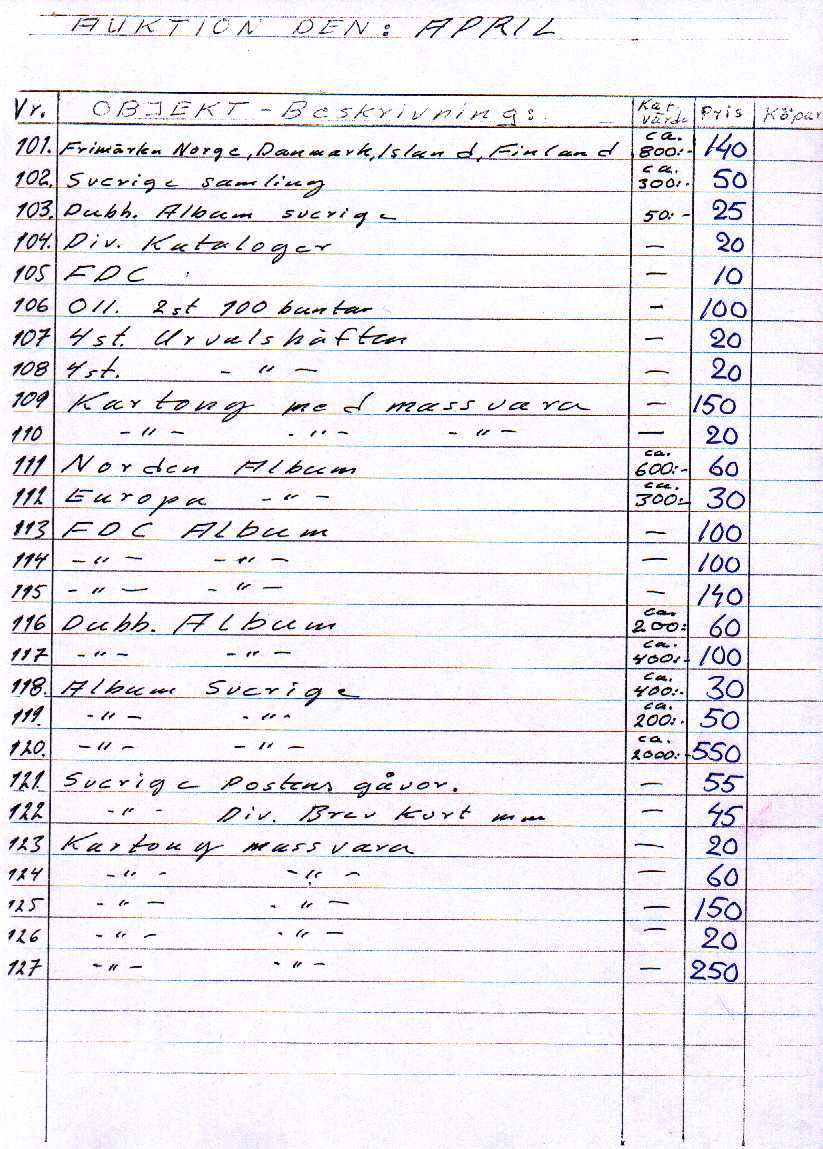 AUKTION DEN: APRIL
Nr. OBJEKT-Beskrivning: Kat. värde Pris Köpare
101. Frimärken Norge, Danmark, Island, Finland ca. 800:- 140
102. Sverige samling ca. 300:- 50
103. Dubb. Album sverige 50:- 25
104. Div. Kataloger — 20
105 FDC : — 10
106 Oll. 2st 100 buntar - 100
107 4st. Urvalshäften — 20
108 4st. - " - — 20
109 Kartong med massvara - 150
110 - " - - " - - " - — 20
111 Norden Album ca. 600:- 60
112 Europa - " - ca. 300:- 30
113 FDC Album — 100
114 - " - - " - — 100
115 - " - - " - — 140
116 Dubb. Album ca. 200: 60
117 - " - - " - ca. 400:- 100
118. Album Sverige ca. 400:- 30
119. - " - - " - ca. 200:- 50
120. - " - - " - ca. 2000:- 550
121. Sverige Postens gåvor. — 55
122 - " - Div. Brev Kort mm — 45
123 Kartong massvara — 20
124 - " - - " - — 60
125 - " - - " - — 150
126 - " - - " - — 20
127 - " - - " - — 250